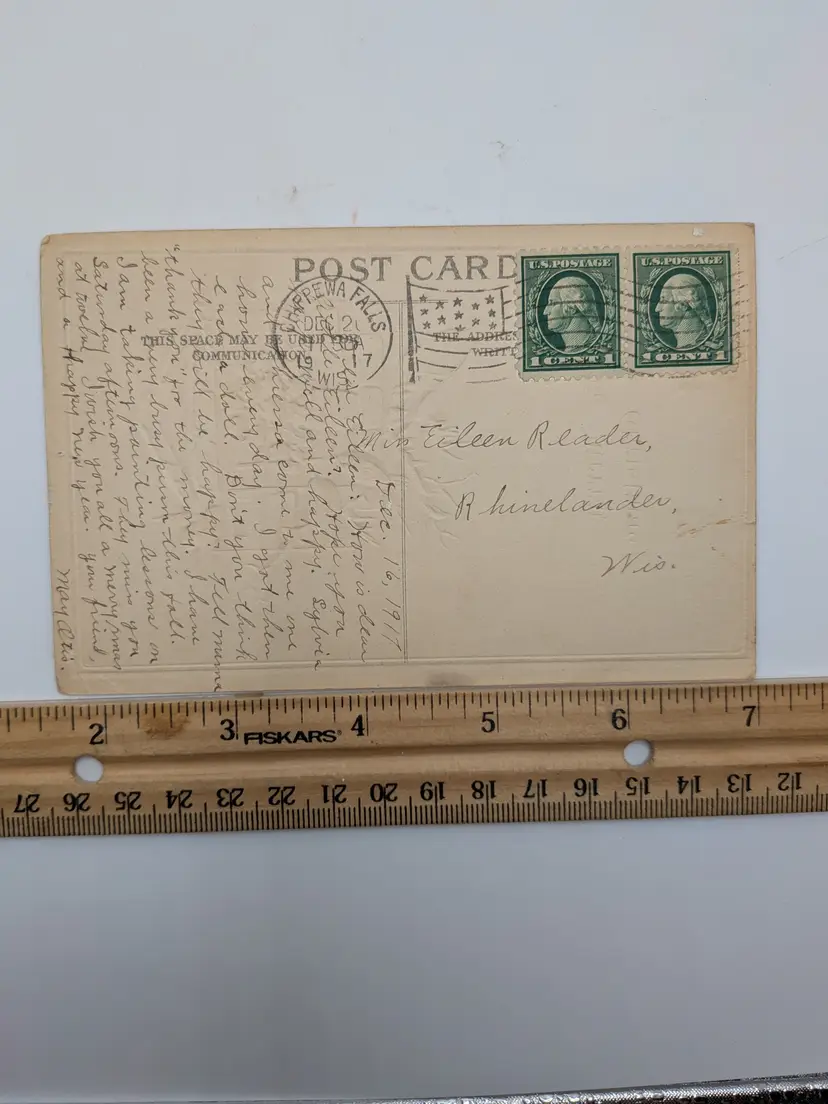 POST CARD
CHIPPEWA FALLS
DEC 2
WIS.
U.S. POSTAGE
1 CENT 1
U.S. POSTAGE
1 CENT 1
THIS SPACE MAY BE USED FOR
COMMUNICATION
THE ADDRES
WRITT
Miss Eileen Reader,
Rhinelander,
Wis.
Dec. 16, 1917.
Eileen: How is dear
little Eileen? Hope you
well and happy. Sylvia
and come to me one
hour every day. I got them
each a doll. Don't you think
they will be happy? Tell mama
"thank you" for the money. I have
been a very busy this fall.
I am taking painting lessons on
Saturday afternoons. They miss you
at twelve. I wish you all a merry Xmas
and a Happy New Year. Your friend,
May Otis.
2 3 FISKARS 4 5 6 7
27 26 25 24 23 22 21 20 19 18 17 16 15 14 13 12